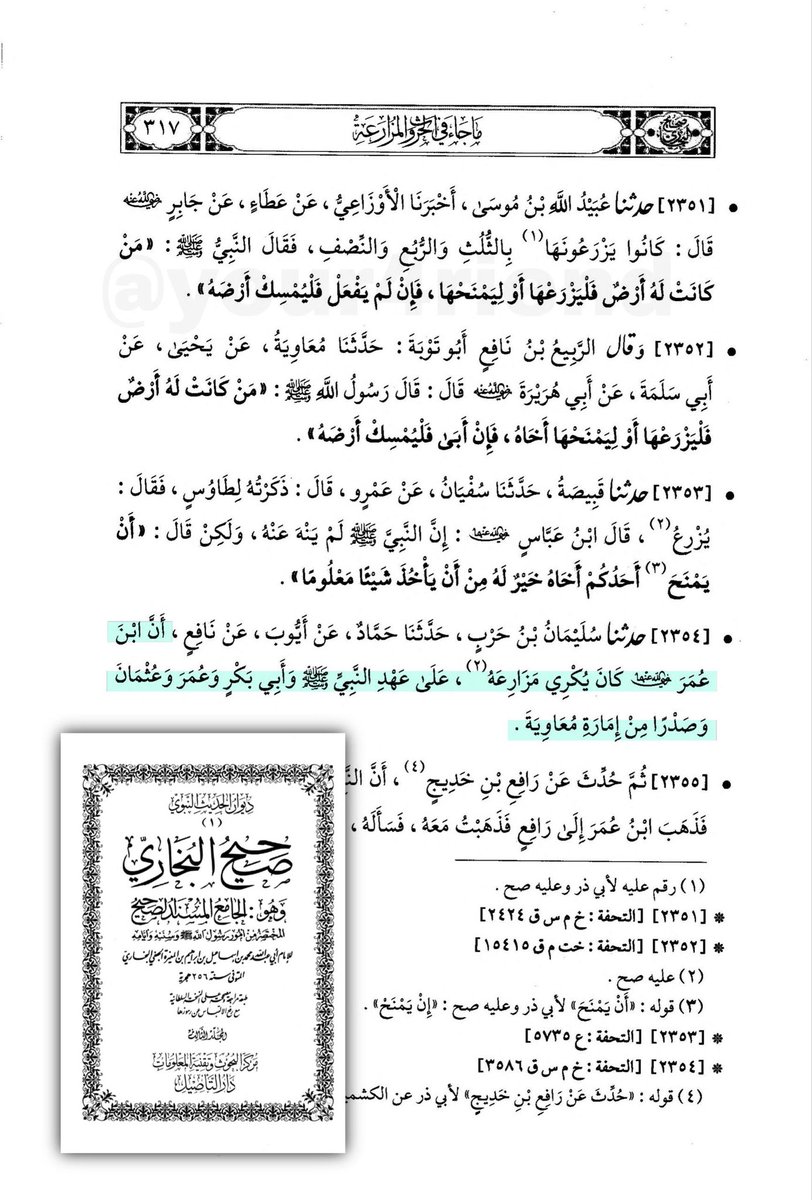 ما جاء في الحرث والمزارعة
٣١٧
• [٢٣٥١] حدثنا عُبَيْدُ اللَّهِ بْنُ مُوسَى ، أَخْبَرَنَا الْأَوْزَاعِيُّ ، عَنْ عَطَاءٍ ، عَنْ جَابِرٍ رضي الله عنه
قَالَ : كَانُوا يَزْرَعُونَهَا(١) بِالثُّلُثِ وَالرُّبُعِ وَالنِّصْفِ ، فَقَالَ النَّبِيُّ ﷺ : «مَنْ
كَانَتْ لَهُ أَرْضٌ فَلْيَزْرَعْهَا أَوْ لِيَمْنَحْهَا ، فَإِنْ لَمْ يَفْعَلْ فَلْيُمْسِكْ أَرْضَهُ» .
@yourfriend
• [٢٣٥٢] وَقال الرَّبِيعُ بْنُ نَافِعٍ أَبُو تَوْبَةَ : حَدَّثَنَا مُعَاوِيَةُ ، عَنْ يَحْيَى ، عَنْ
أَبِي سَلَمَةَ ، عَنْ أَبِي هُرَيْرَةَ رضي الله عنه قَالَ : قَالَ رَسُولُ اللَّهِ ﷺ : «مَنْ كَانَتْ لَهُ أَرْضٌ
فَلْيَزْرَعْهَا أَوْ لِيَمْنَحْهَا أَخَاهُ ، فَإِنْ أَبَى فَلْيُمْسِكْ أَرْضَهُ» .
• [٢٣٥٣] حدثنا قَبِيصَةُ ، حَدَّثَنَا سُفْيَانُ ، عَنْ عَمْرٍو ، قَالَ : ذَكَرْتُهُ لِطَاوُسٍ ، فَقَالَ :
يُزْرِعُ(٢) ، قَالَ ابْنُ عَبَّاسٍ رضي الله عنهما : إِنَّ النَّبِيَّ ﷺ لَمْ يَنْهَ عَنْهُ ، وَلَكِنْ قَالَ : «أَنْ
يَمْنَحَ(٣) أَحَدُكُمْ أَخَاهُ خَيْرٌ لَهُ مِنْ أَنْ يَأْخُذَ شَيْئًا مَعْلُومًا» .
• [٢٣٥٤] حدثنا سُلَيْمَانُ بْنُ حَرْبٍ ، حَدَّثَنَا حَمَّادٌ ، عَنْ أَيُّوبَ ، عَنْ نَافِعٍ ، أَنَّ ابْنَ
عُمَرَ رضي الله عنهما كَانَ يُكْرِي مَزَارِعَهُ(٢) ، عَلَى عَهْدِ النَّبِيِّ ﷺ وَأَبِي بَكْرٍ وَعُمَرَ وَعُثْمَانَ
وَصَدْرًا مِنْ إِمَارَةِ مُعَاوِيَةَ .
• [٢٣٥٥] ثُمَّ حُدِّثَ عَنْ رَافِعِ بْنِ خَدِيجٍ(٤) ، أَنَّ
فَذَهَبَ ابْنُ عُمَرَ إِلَى رَافِعٍ فَذَهَبْتُ مَعَهُ ، فَسَأَلَهُ ،
(١) رقم عليه لأبي ذر وعليه صح .
* [٢٣٥١] [التحفة : خ م س ق ٢٤٢٤]
* [٢٣٥٢] [التحفة : خت م ق ١٥٤١٥]
(٢) عليه صح .
(٣) قوله : «أَنْ يَمْنَحَ» لأبي ذر وعليه صح : «إِنْ يَمْنَحْ» .
* [٢٣٥٣] [التحفة : ع ٥٧٣٥]
* [٢٣٥٤] [التحفة : خ م س ق ٣٥٨٦]
(٤) قوله : «حُدِّثَ عَنْ رَافِعِ بْنِ خَدِيجٍ» لأبي ذر عن
ديوان الحديث النبوي
(١)
صحيح البخاري
وهو : الجامع المسند الصحيح
المختصر من أمور رسول الله ﷺ وسننه وأيامه
للإمام أبي عبد الله محمد بن إسماعيل بن إبراهيم بن المغيرة الجعفي البخاري
المتوفى سنة ٢٥٦ هجرية
المجلد الثالث
مركز البحوث وتقنية المعلومات
دار التأصيل